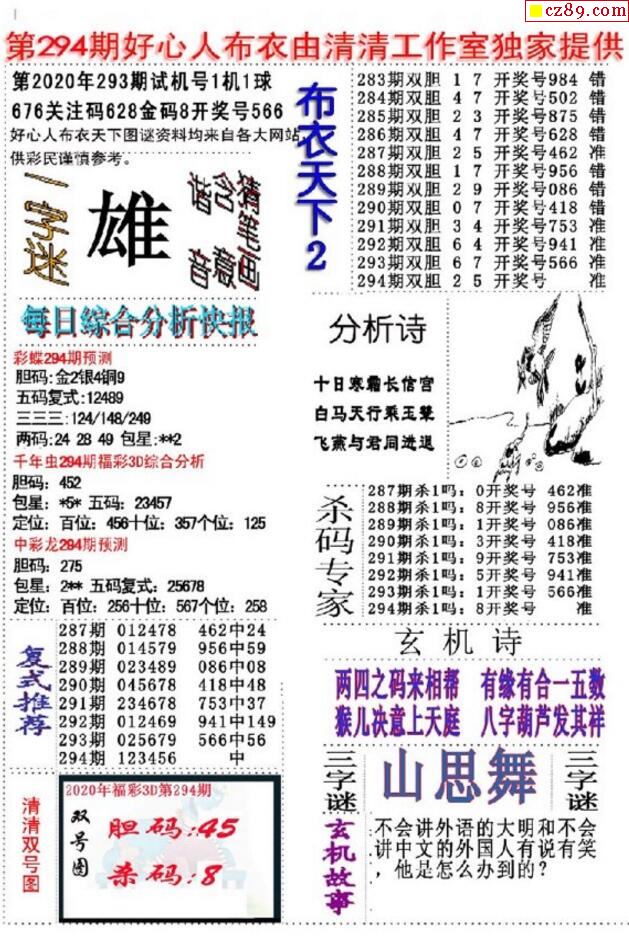 cz89.com
第294期好心人布衣由清清工作室独家提供
第2020年293期试机号1机1球
676关注码628金码8开奖号566
好心人布衣天下图谜资料均来自各大网站,
供彩民谨慎参考。
一字谜
雄
猜笔画
含意
谐音
每日综合分析快报
彩蝶294期预测
胆码:金2银4铜9
五码复式:12489
三三三:124/148/249
两码:24 28 49 包星:**2
千年虫294期福彩3D综合分析
胆码: 452
包星: *5* 五码: 23457
定位: 百位: 456十位: 357个位: 125
中彩龙294期预测
胆码: 275
包星: 2** 五码复式: 25678
定位: 百位: 256十位: 567个位: 258
复式推荐
287期 012478 462中24
288期 014579 956中59
289期 023489 086中08
290期 045678 418中48
291期 234678 753中37
292期 012469 941中149
293期 025679 566中56
294期 123456 中
清清双号图
2020年福彩3D第294期
双号图
胆码:45
杀码:8
布衣天下2
283期双胆 1 7 开奖号984 错
284期双胆 4 7 开奖号502 错
285期双胆 2 3 开奖号875 错
286期双胆 4 7 开奖号628 错
287期双胆 2 5 开奖号462 准
288期双胆 1 7 开奖号956 错
289期双胆 2 9 开奖号086 错
290期双胆 0 7 开奖号418 错
291期双胆 3 4 开奖号753 准
292期双胆 6 4 开奖号941 准
293期双胆 6 7 开奖号566 准
294期双胆 2 5 开奖号 准
分析诗
十日寒霜长信宫
白马天行乘玉辇
飞燕与君同进退
杀码专家
287期杀1吗: 0开奖号 462准
288期杀1吗: 8开奖号 956准
289期杀1吗: 1开奖号 086准
290期杀1吗: 3开奖号 418准
291期杀1吗: 9开奖号 753准
292期杀1吗: 5开奖号 941准
293期杀1吗: 1开奖号 566准
294期杀1吗: 8开奖号 准
玄机诗
两四之码来相帮 有缘有合一五数
猴儿决意上天庭 八字葫芦发其祥
三字谜
山思舞
三字谜
玄机故事
不会讲外语的大明和不会
讲中文的外国人有说有笑
，他是怎么办到的?